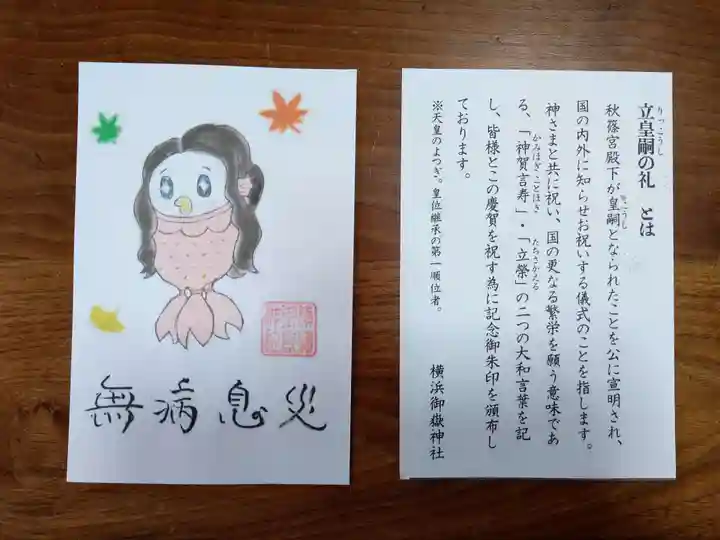 無病息災
立皇嗣の礼 とは
りっこうし
秋篠宮殿下が皇嗣となられたことを公に宣明され、
こうし
国の内外に知らせお祝いする儀式のことを指します。
神さまと共に祝い、国の更なる繁栄を願う意味であ
る、「神賀言寿」・「立榮」の二つの大和言葉を記
かみほぎことほぎ
たちさかえる
し、皆様とこの慶賀を祝す為に記念御朱印を頒布し
ております。
※天皇のよつぎ。皇位継承の第一順位者。
横浜御嶽神社